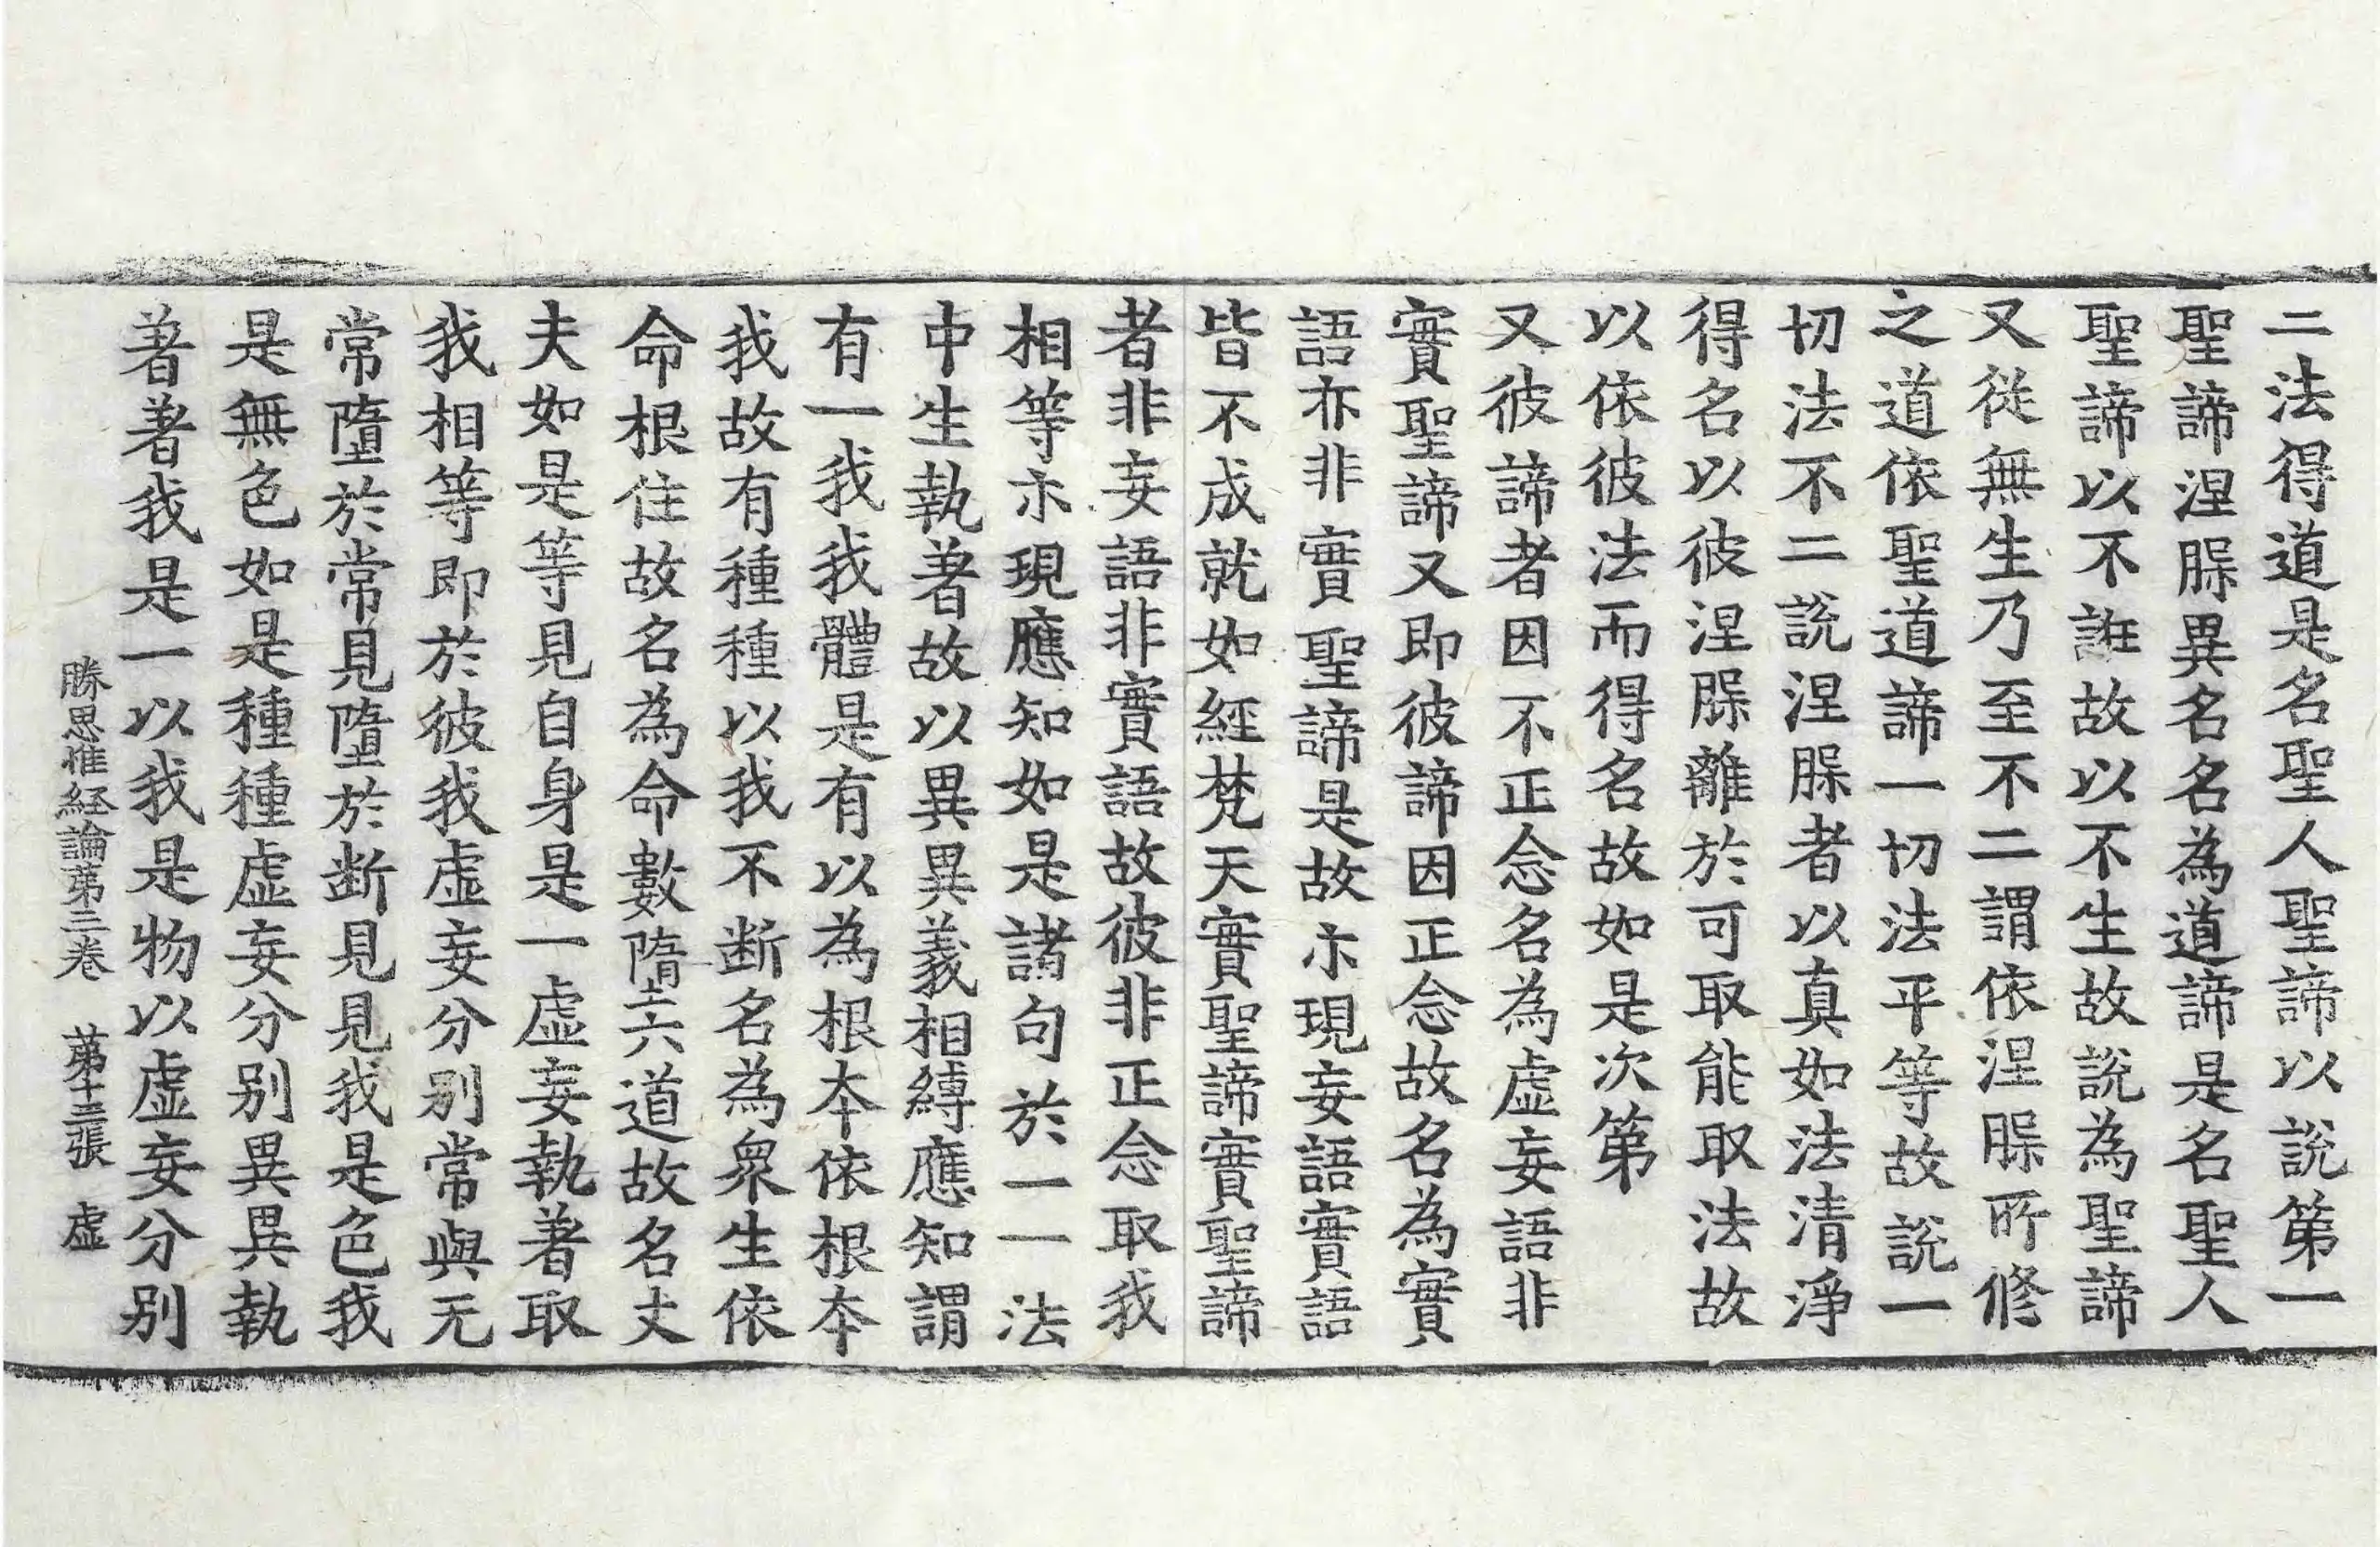 二法得道是名聖人聖諦以說第一
聖諦涅槃異名名為道諦是名聖人
聖諦以不誑故以不生故說為聖諦
又從無生乃至不二謂依涅槃所修
之道依聖道諦一切法平等故說一
切法不二說涅槃者以真如法清淨
得名以彼涅槃離於可取能取法故
以依彼法而得名故如是次第
又彼諦者因不正念名為虛妄語非
實聖諦又即彼諦因正念故名為實
語亦非實聖諦是故示現妄語實語
皆不成就如經梵天實聖諦實聖諦
者非妄語非實語故彼非正念取我
相等示現應知如是諸句於一一法
中生執著故以異異義相縛應知謂
有一我我體是有以為根本依根本
我故有種種以我不断名為衆生依
命根住故名為命數隋六道故名丈
夫如是等見自身是一虛妄執著取
我相等即於彼我虛妄分別常與无
常墮於常見墮於断見見我是色我
是無色如是種種虛妄分別異異執
著著我是一以我是物以虛妄分別
勝思惟経論第三卷　第十三張　虛